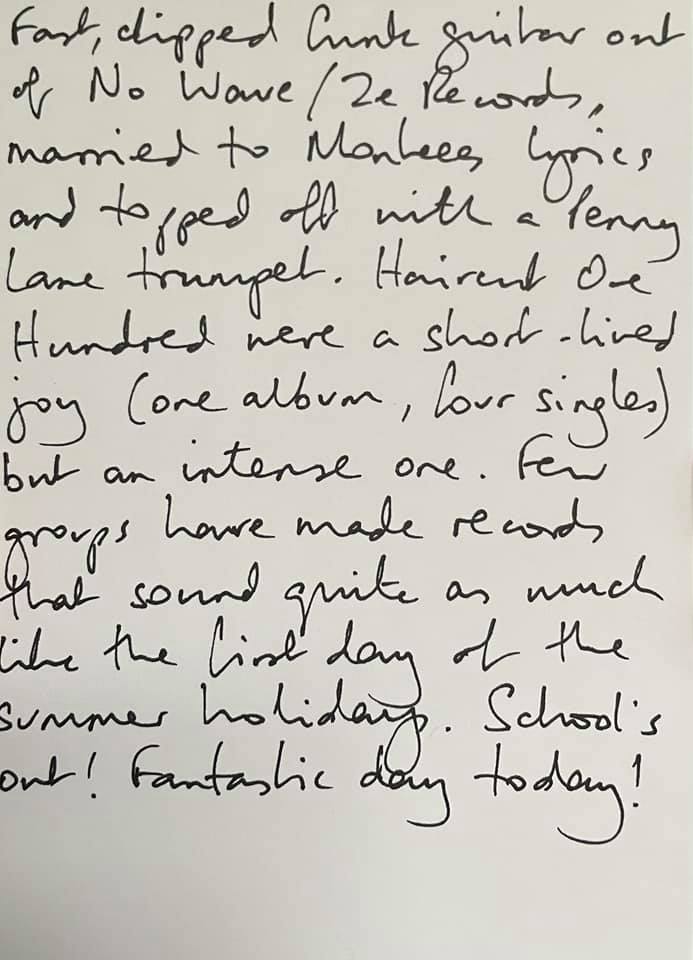 Fast, clipped funk guitar out
of No Wave/Ze Records,
married to Monkees lyrics
and topped off with a Penny
Lane trumpet. Haircut One
Hundred were a short-lived
joy (one album, four singles)
but an intense one. Few
groups have made records
that sound quite as much
like the first day of the
summer holidays. School's
out! Fantastic day today!